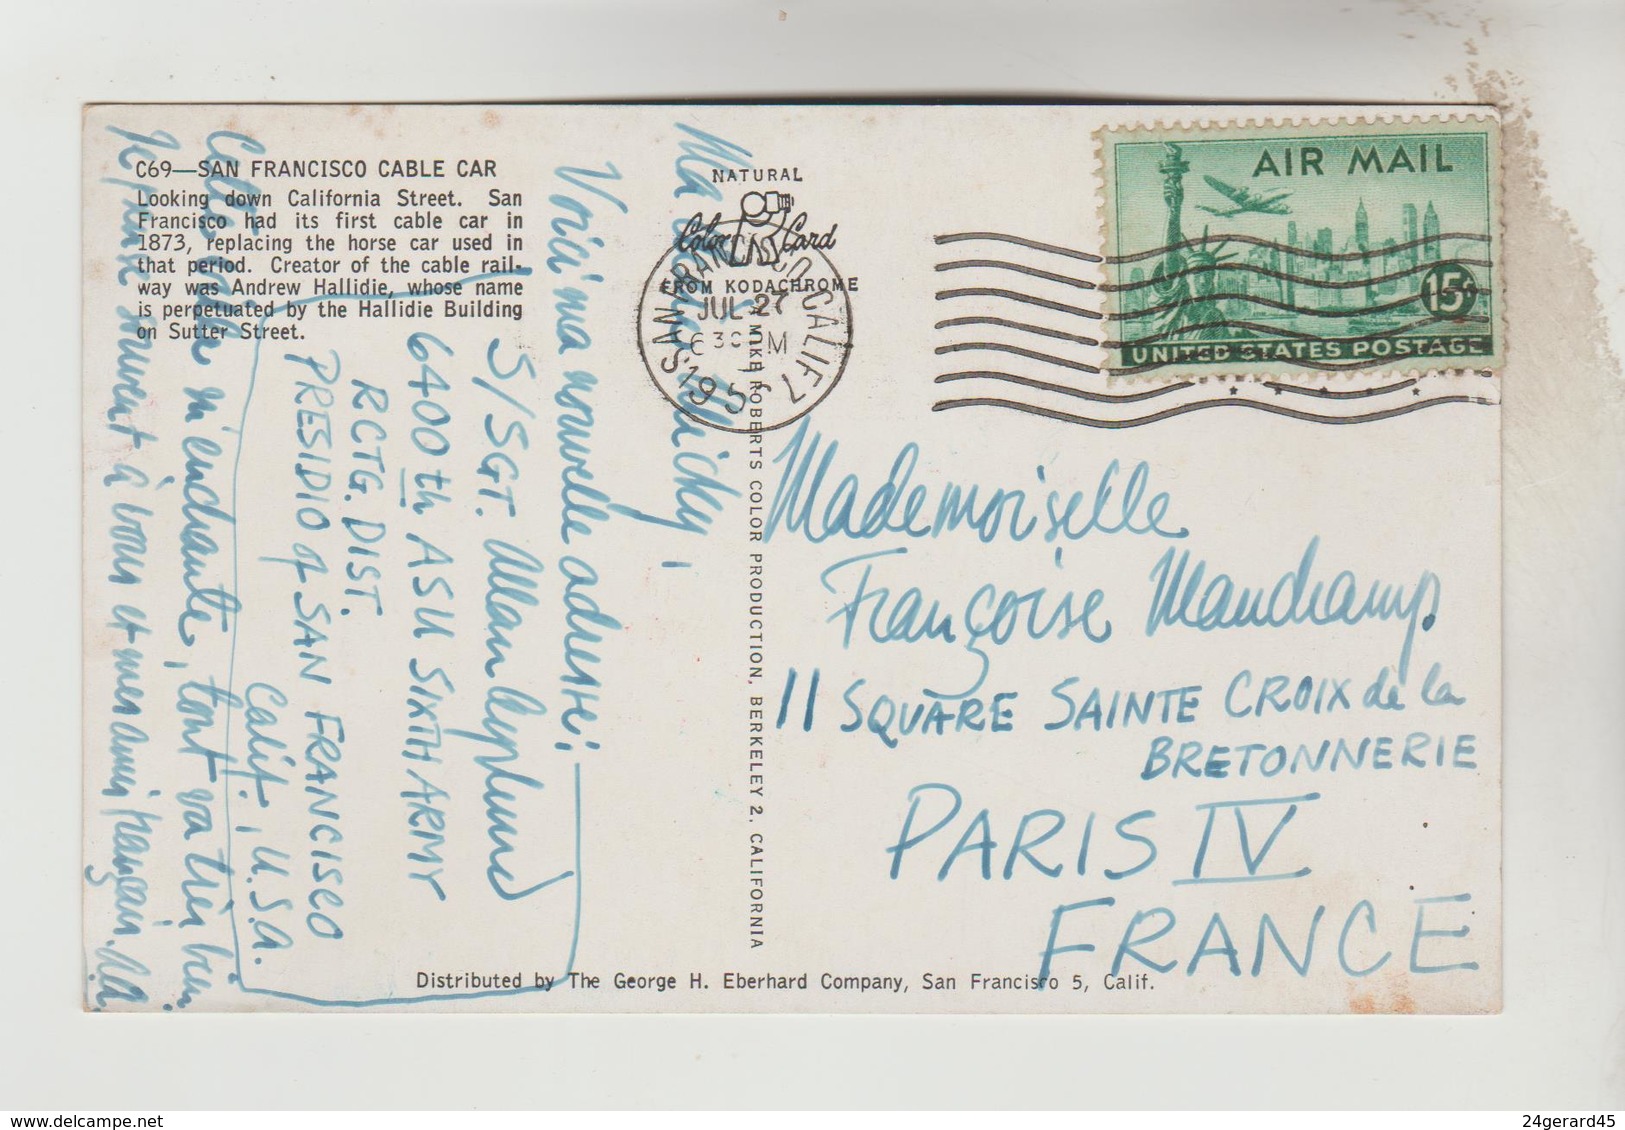 C69—SAN FRANCISCO CABLE CAR
Looking down California Street. San
Francisco had its first cable car in
1873, replacing the horse car used in
that period. Creator of the cable rail-
way was Andrew Hallidie, whose name
is perpetuated by the Hallidie Building
on Sutter Street.
NATURAL
Color Card
FROM KODACHROME
SAN FRANCISCO CALIF
JUL 27
630 PM
195
AIR MAIL
15¢
UNITED STATES POSTAGE
A MIKE ROBERTS COLOR PRODUCTION, BERKELEY 2, CALIFORNIA
Ma Micky,
Voici ma nouvelle adresse:
S/SGT. Allan
6400th ASU SIXTH ARMY
RCTG. DIST.
PRESIDIO of SAN FRANCISCO
Calif., U.S.A.
m'enchante, tout va très bien
Je pense souvent à vous et mes amis français.
Mademoiselle
Françoise Mandcamp
11 SQUARE SAINTE CROIX de la
BRETONNERIE
PARIS IV
FRANCE
Distributed by The George H. Eberhard Company, San Francisco 5, Calif.
24gerard45